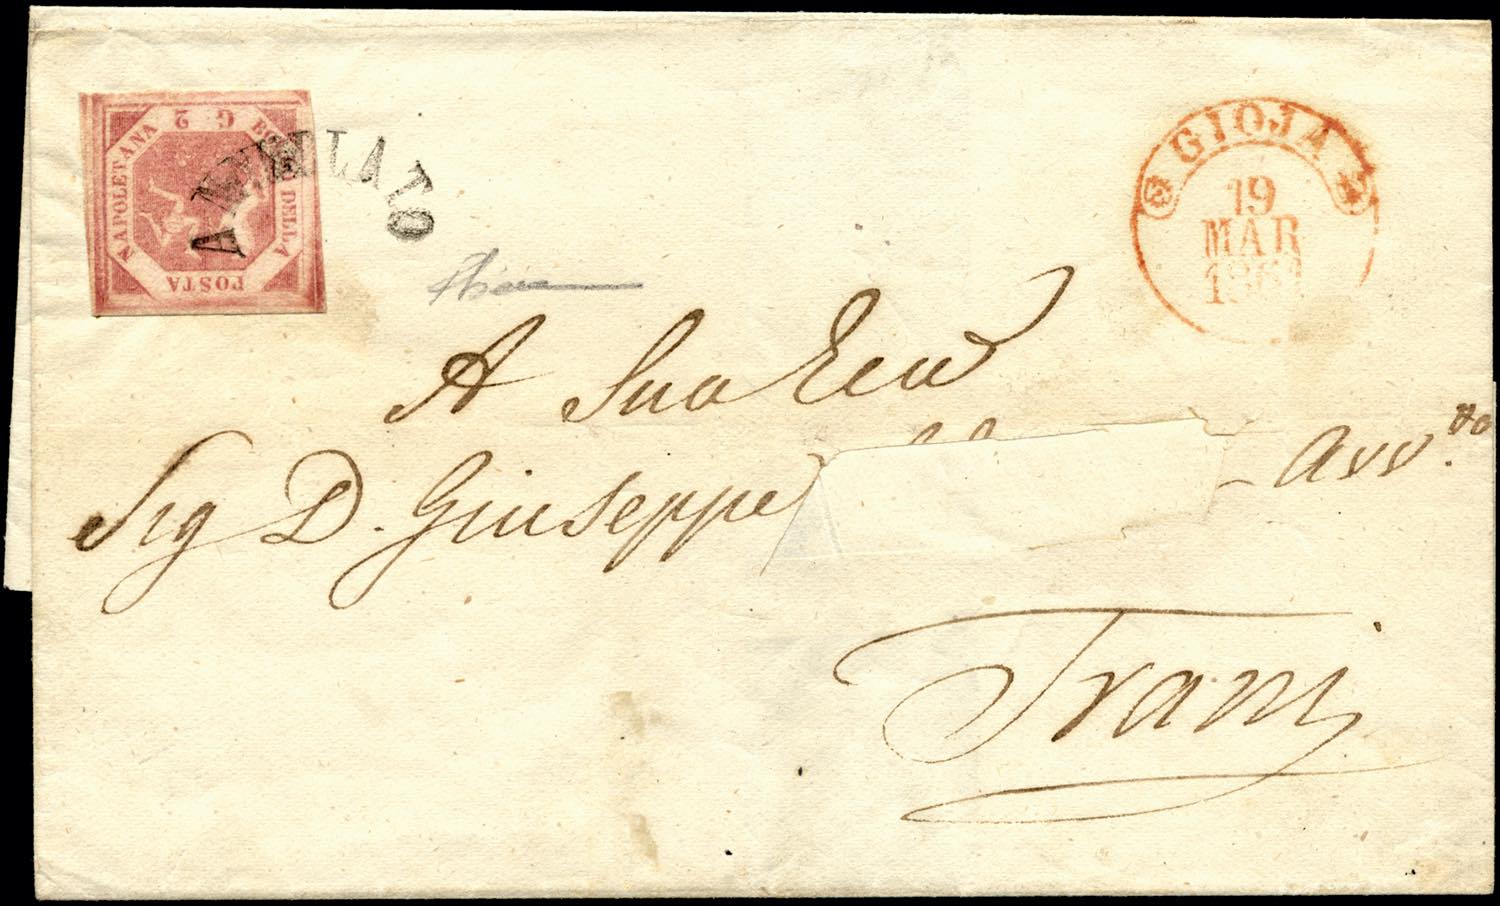 G 2
BOLLO DELLA
POSTA
NAPOLETANA
ANNULLATO
GIOJA
19
MAR
A Sua Ecc
Sig D. Giuseppe
Avv.to
Trani